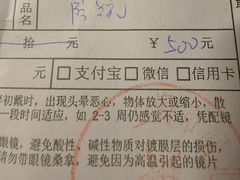 品名
拾 元 ¥ 500元
元 □支付宝 □微信 □信用卡
初戴时，出现头晕恶心，物体放大或缩小，散
一段时间适应，如 2-3 周仍感觉不适，凭配镜
眼镜，避免酸性、碱性物质对镀膜层的损伤，
请勿带眼镜桑拿，避免因为高温引起的镜片